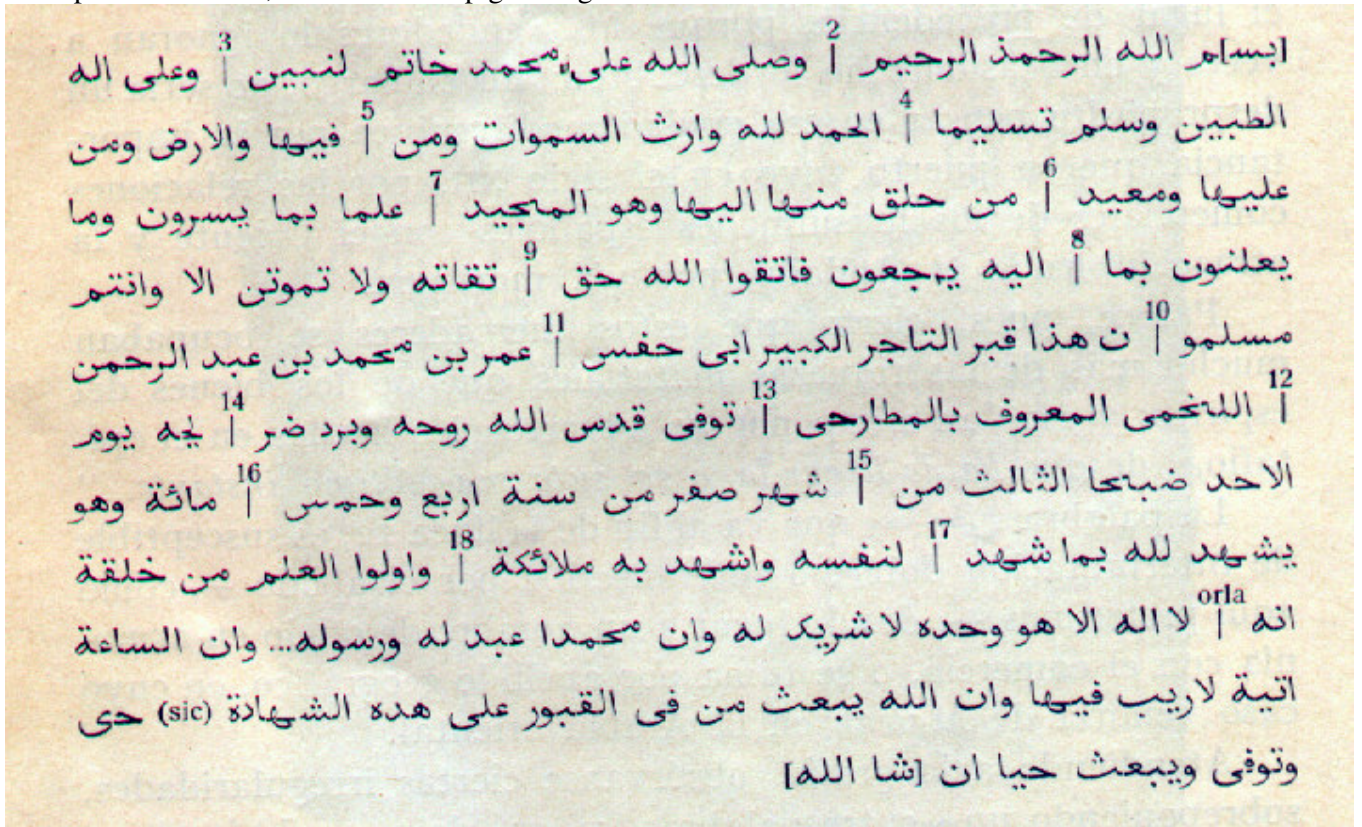 [بسا]م الله الرحمذ الرحيم |2 وصلى الله على محمد خاتم لنبين |3 وعلى اله
الطبين وسلم تسليما |4 الحمد لله وارث السموات ومن |5 فيها والارض ومن
عليها ومعيد |6 من حلق منها اليها وهو المجيد |7 علما بما يسرون وما
يعلنون بما |8 اليه يرجعون فاتقوا الله حق |9 تقاته ولا تموتن الا وانتم
مسلمو |10 ن هذا قبر التاجر الكبير ابى حفس |11 عمر بن محمد بن عبد الرحمن
|12 اللخمى المعروف بالمطارحى |13 توفى قدس الله روحه وبرد ضر |14 يحه يوم
الاحد ضبحا الثالث من |15 شهر صفر من سنة اربع وحمس |16 مائة وهو
يشهد لله بما شهد |17 لنفسه واشهد به ملائكة |18 واولوا العلم من خلقة
انه |orla لا اله الا هو وحده لا شريك له وان محمدا عبد له ورسوله... وان الساعة
اتية لاريب فيها وان الله يبعث من فى القبور على هده الشهادة (sic) حى
وتوفى ويبعث حيا ان [شا الله]